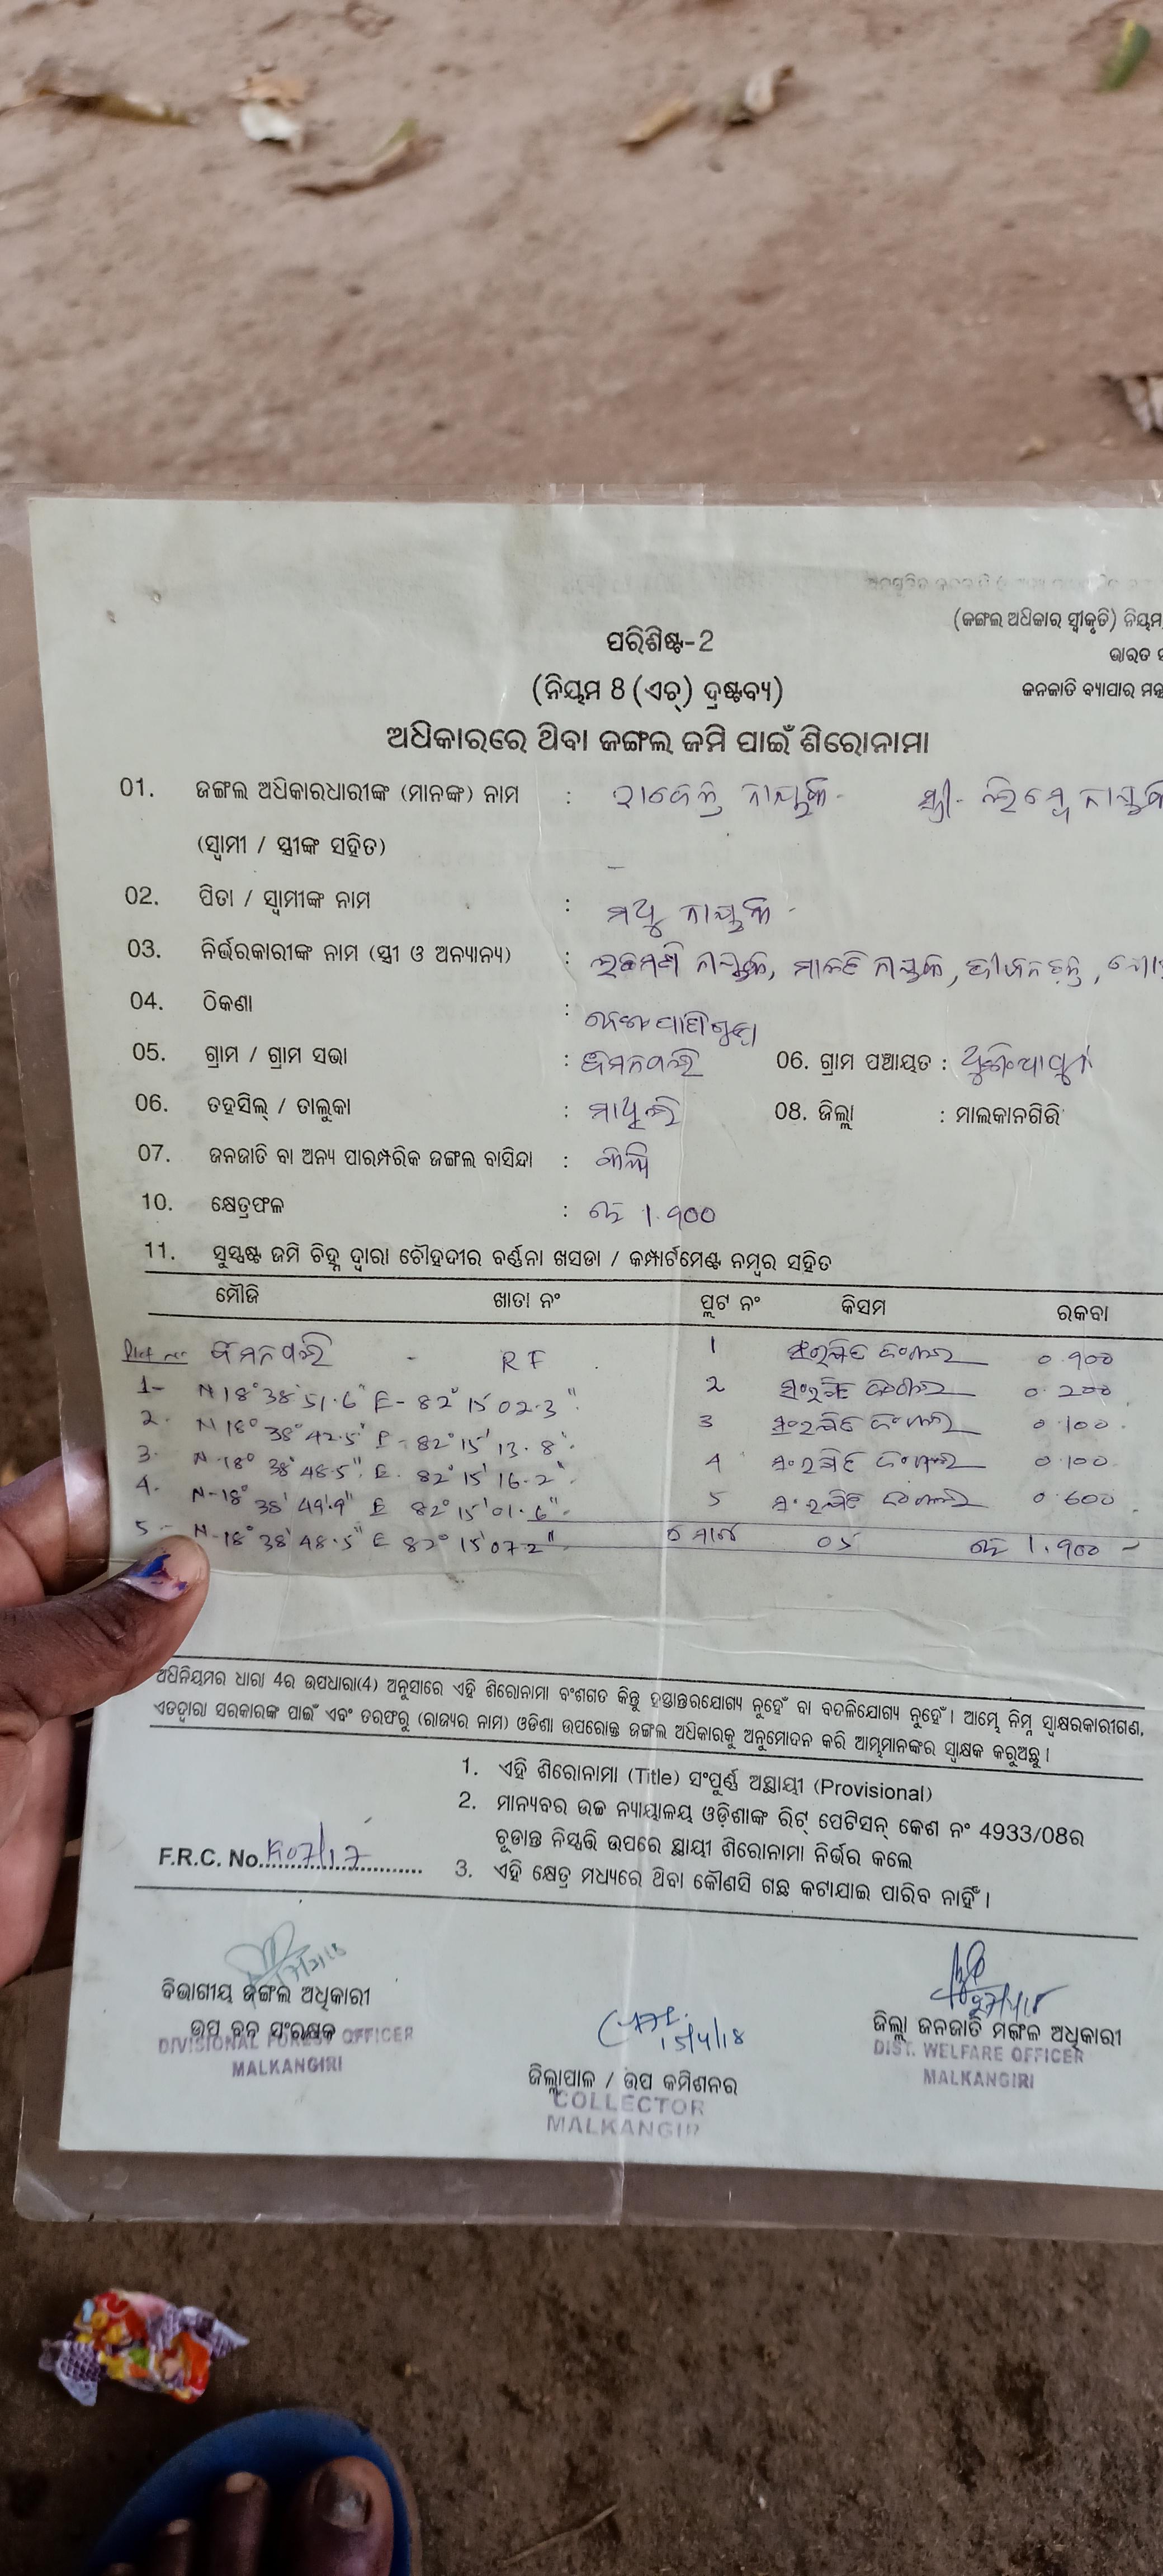 (ଜଙ୍ଗଲ ଅଧିକାର ସ୍ୱୀକୃତି) ନିୟମ
ପରିଶିଷ୍ଟ-2
ଭାରତ
(ନିୟମ 8 (ଏଚ୍) ଦ୍ରଷ୍ଟବ୍ୟ)
ଜନଜାତି ବ୍ୟାପାର
ଅଧିକାରରେ ଥିବା ଜଙ୍ଗଲ ଜମି ପାଇଁ ଶିରୋନାମା
01. ଜଙ୍ଗଲ ଅଧିକାରଧାରୀଙ୍କ (ମାନଙ୍କ) ନାମ :
(ସ୍ୱାମୀ / ସ୍ତ୍ରୀଙ୍କ ସହିତ)
02. ପିତା / ସ୍ୱାମୀଙ୍କ ନାମ : ମଧୁ ନାୟକ
03. ନିର୍ଭରକାରୀଙ୍କ ନାମ (ସ୍ତ୍ରୀ ଓ ଅନ୍ୟାନ୍ୟ) :
04. ଠିକଣା :
05. ଗ୍ରାମ / ଗ୍ରାମ ସଭା : 06. ଗ୍ରାମ ପଞ୍ଚାୟତ :
06. ତହସିଲ୍ / ତାଲୁକା : ମାଥିଲି 08. ଜିଲ୍ଲା : ମାଲକାନଗିରି
07. ଜନଜାତି ବା ଅନ୍ୟ ପାରମ୍ପରିକ ଜଙ୍ଗଲ ବାସିନ୍ଦା :
10. କ୍ଷେତ୍ରଫଳ : 1.900
11. ସୁସ୍ପଷ୍ଟ ଜମି ଚିହ୍ନ ଦ୍ୱାରା ଚୌହଦୀର ବର୍ଣ୍ଣନା ଖସଡା / କମ୍ପାର୍ଟମେଣ୍ଟ ନମ୍ବର ସହିତ
ମୌଜି ଖାତା ନଂ ପ୍ଲଟ ନଂ କିସମ ରକବା
RF 1 ସଂରକ୍ଷିତ ଜଂଗଲ 0.900
1- N 18° 38' 51.6" E- 82° 15' 02.3" 2 ସଂରକ୍ଷିତ ଜଂଗଲ 0.200
2. N 18° 38' 42.5" E- 82° 15' 13.8" 3 ସଂରକ୍ଷିତ ଜଂଗଲ 0.100
3- N-18° 38' 48.5" E. 82° 15' 16.2" 4 ସଂରକ୍ଷିତ ଜଂଗଲ 0.100
4- N-18° 38' 49.9" E 82° 15' 01.6" 5 ସଂରକ୍ଷିତ ଜଂଗଲ 0.600
5- N-18° 38' 48.5" E 82° 15' 07.2" 05 1.900
ଅଧିନିୟମର ଧାରା 4ର ଉପଧାରା(4) ଅନୁସାରେ ଏହି ଶିରୋନାମା ବଂଶଗତ କିନ୍ତୁ ହସ୍ତାନ୍ତରଯୋଗ୍ୟ ନୁହେଁ ବା ବଦଳିଯୋଗ୍ୟ ନୁହେଁ। ଆମ୍ଭେ ନିମ୍ନ ସ୍ୱାକ୍ଷରକାରୀଗଣ,
ଏତଦ୍ୱାରା ସରକାରଙ୍କ ପାଇଁ ଏବଂ ତରଫରୁ (ରାଜ୍ୟର ନାମ) ଓଡିଶା ଉପରୋକ୍ତ ଜଙ୍ଗଲ ଅଧିକାରକୁ ଅନୁମୋଦନ କରି ଆମ୍ଭମାନଙ୍କର ସ୍ୱାକ୍ଷକ କରୁଅଛୁ।
1. ଏହି ଶିରୋନାମା (Title) ସଂପୁର୍ଣ୍ଣ ଅସ୍ଥାୟୀ (Provisional)
2. ମାନ୍ୟବର ଉଚ୍ଚ ନ୍ୟାୟାଳୟ ଓଡ଼ିଶାଙ୍କ ରିଟ୍ ପେଟିସନ୍ କେଶ ନଂ 4933/08ର
ଚୂଡାନ୍ତ ନିସ୍ପତ୍ତି ଉପରେ ସ୍ଥାୟୀ ଶିରୋନାମା ନିର୍ଭର କଲେ
F.R.C. No.
3. ଏହି କ୍ଷେତ୍ର ମଧ୍ୟରେ ଥିବା କୌଣସି ଗଛ କଟାଯାଇ ପାରିବ ନାହିଁ।
ବିଭାଗୀୟ ଜଙ୍ଗଲ ଅଧିକାରୀ
ଉପ ବନ ସଂରକ୍ଷକ
DIVISIONAL FOREST OFFICER
MALKANGIRI
15/4/18
ଜିଲ୍ଲାପାଳ / ଉପ କମିଶନର
COLLECTOR
MALKANGIR
ଜିଲ୍ଲା ଜନଜାତି ମଙ୍ଗଳ ଅଧିକାରୀ
DIST. WELFARE OFFICER
MALKANGIRI